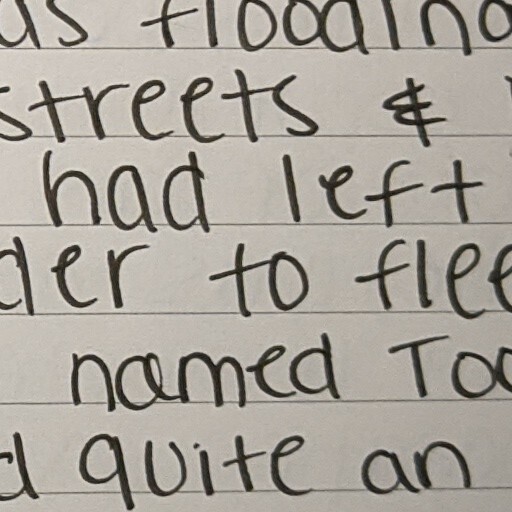 as flooding
streets &
had left
der to flee
named Too
d quite an